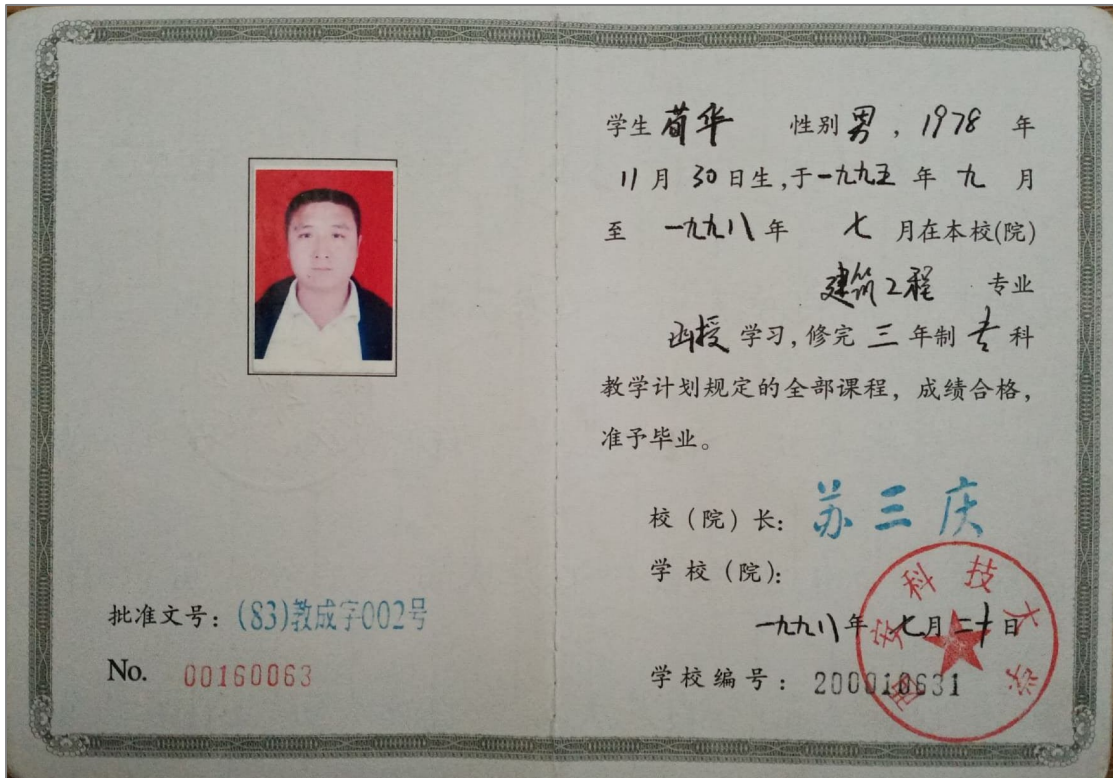 批准文号：(83)教成字002号
No. 00160063
学生 荀华 性别男，1978 年
11月 30日生，于一九九五 年 九 月
至 一九九八年 七 月在本校(院)
建筑工程 专业
函授 学习，修完 三 年制 专 科
教学计划规定的全部课程，成绩合格，
准予毕业。
校（院）长：苏三庆
学校（院）：
西安科技大学
一九九八年 七月二十日
学校编号：200010631